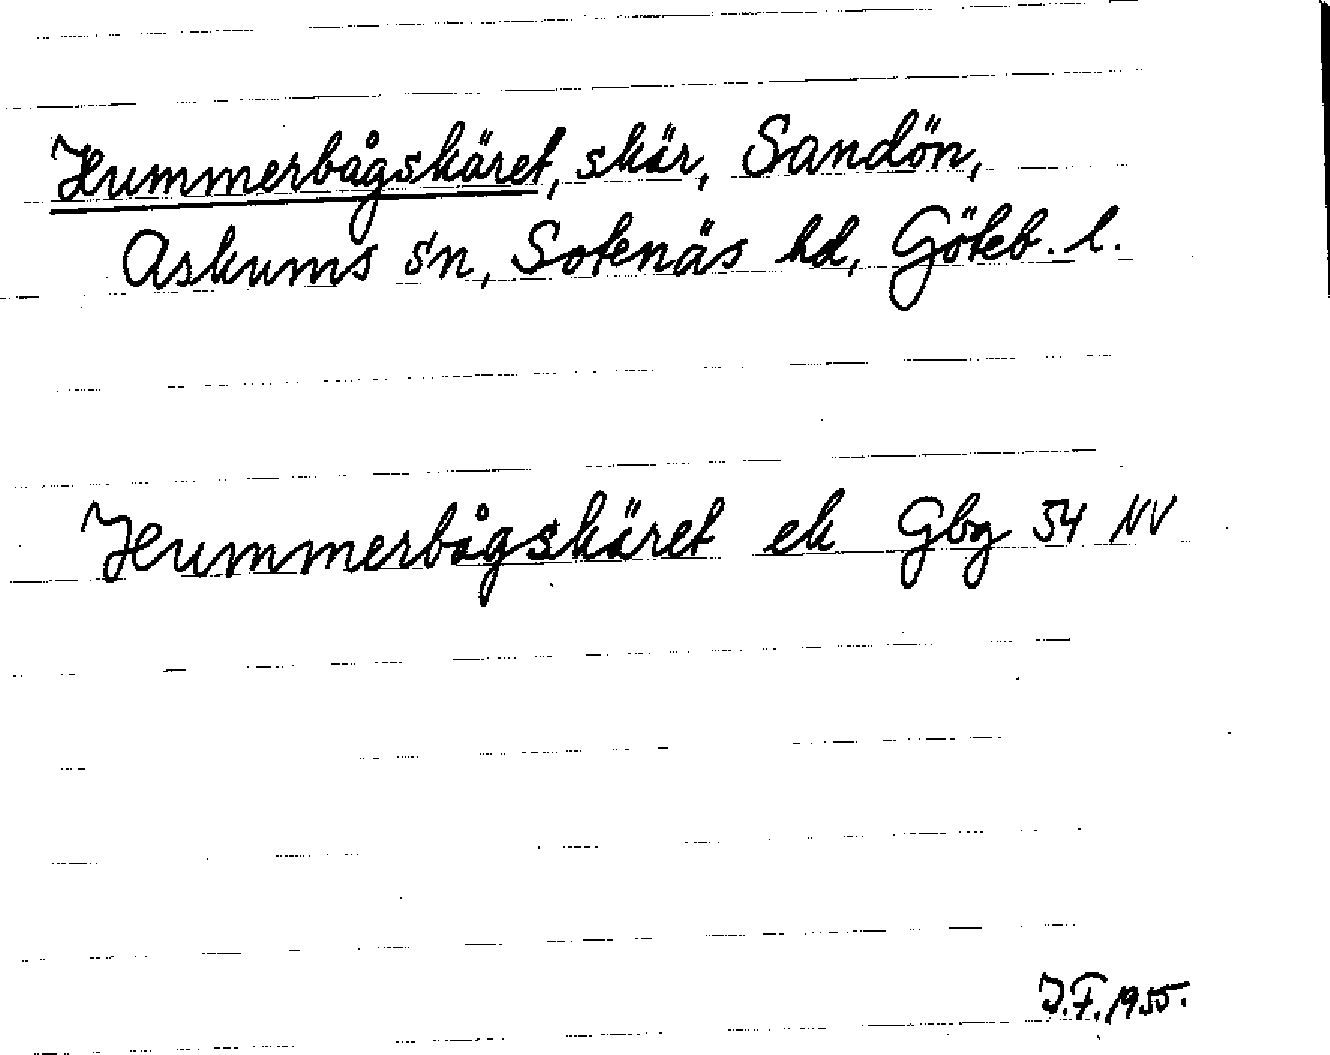 Hummerbågskäret, skär, Sandön,
Askums sn, Sotenäs hd, Göteb. l.
Hummerbågskäret ek Gbg 54 NV
J.F. 1955.